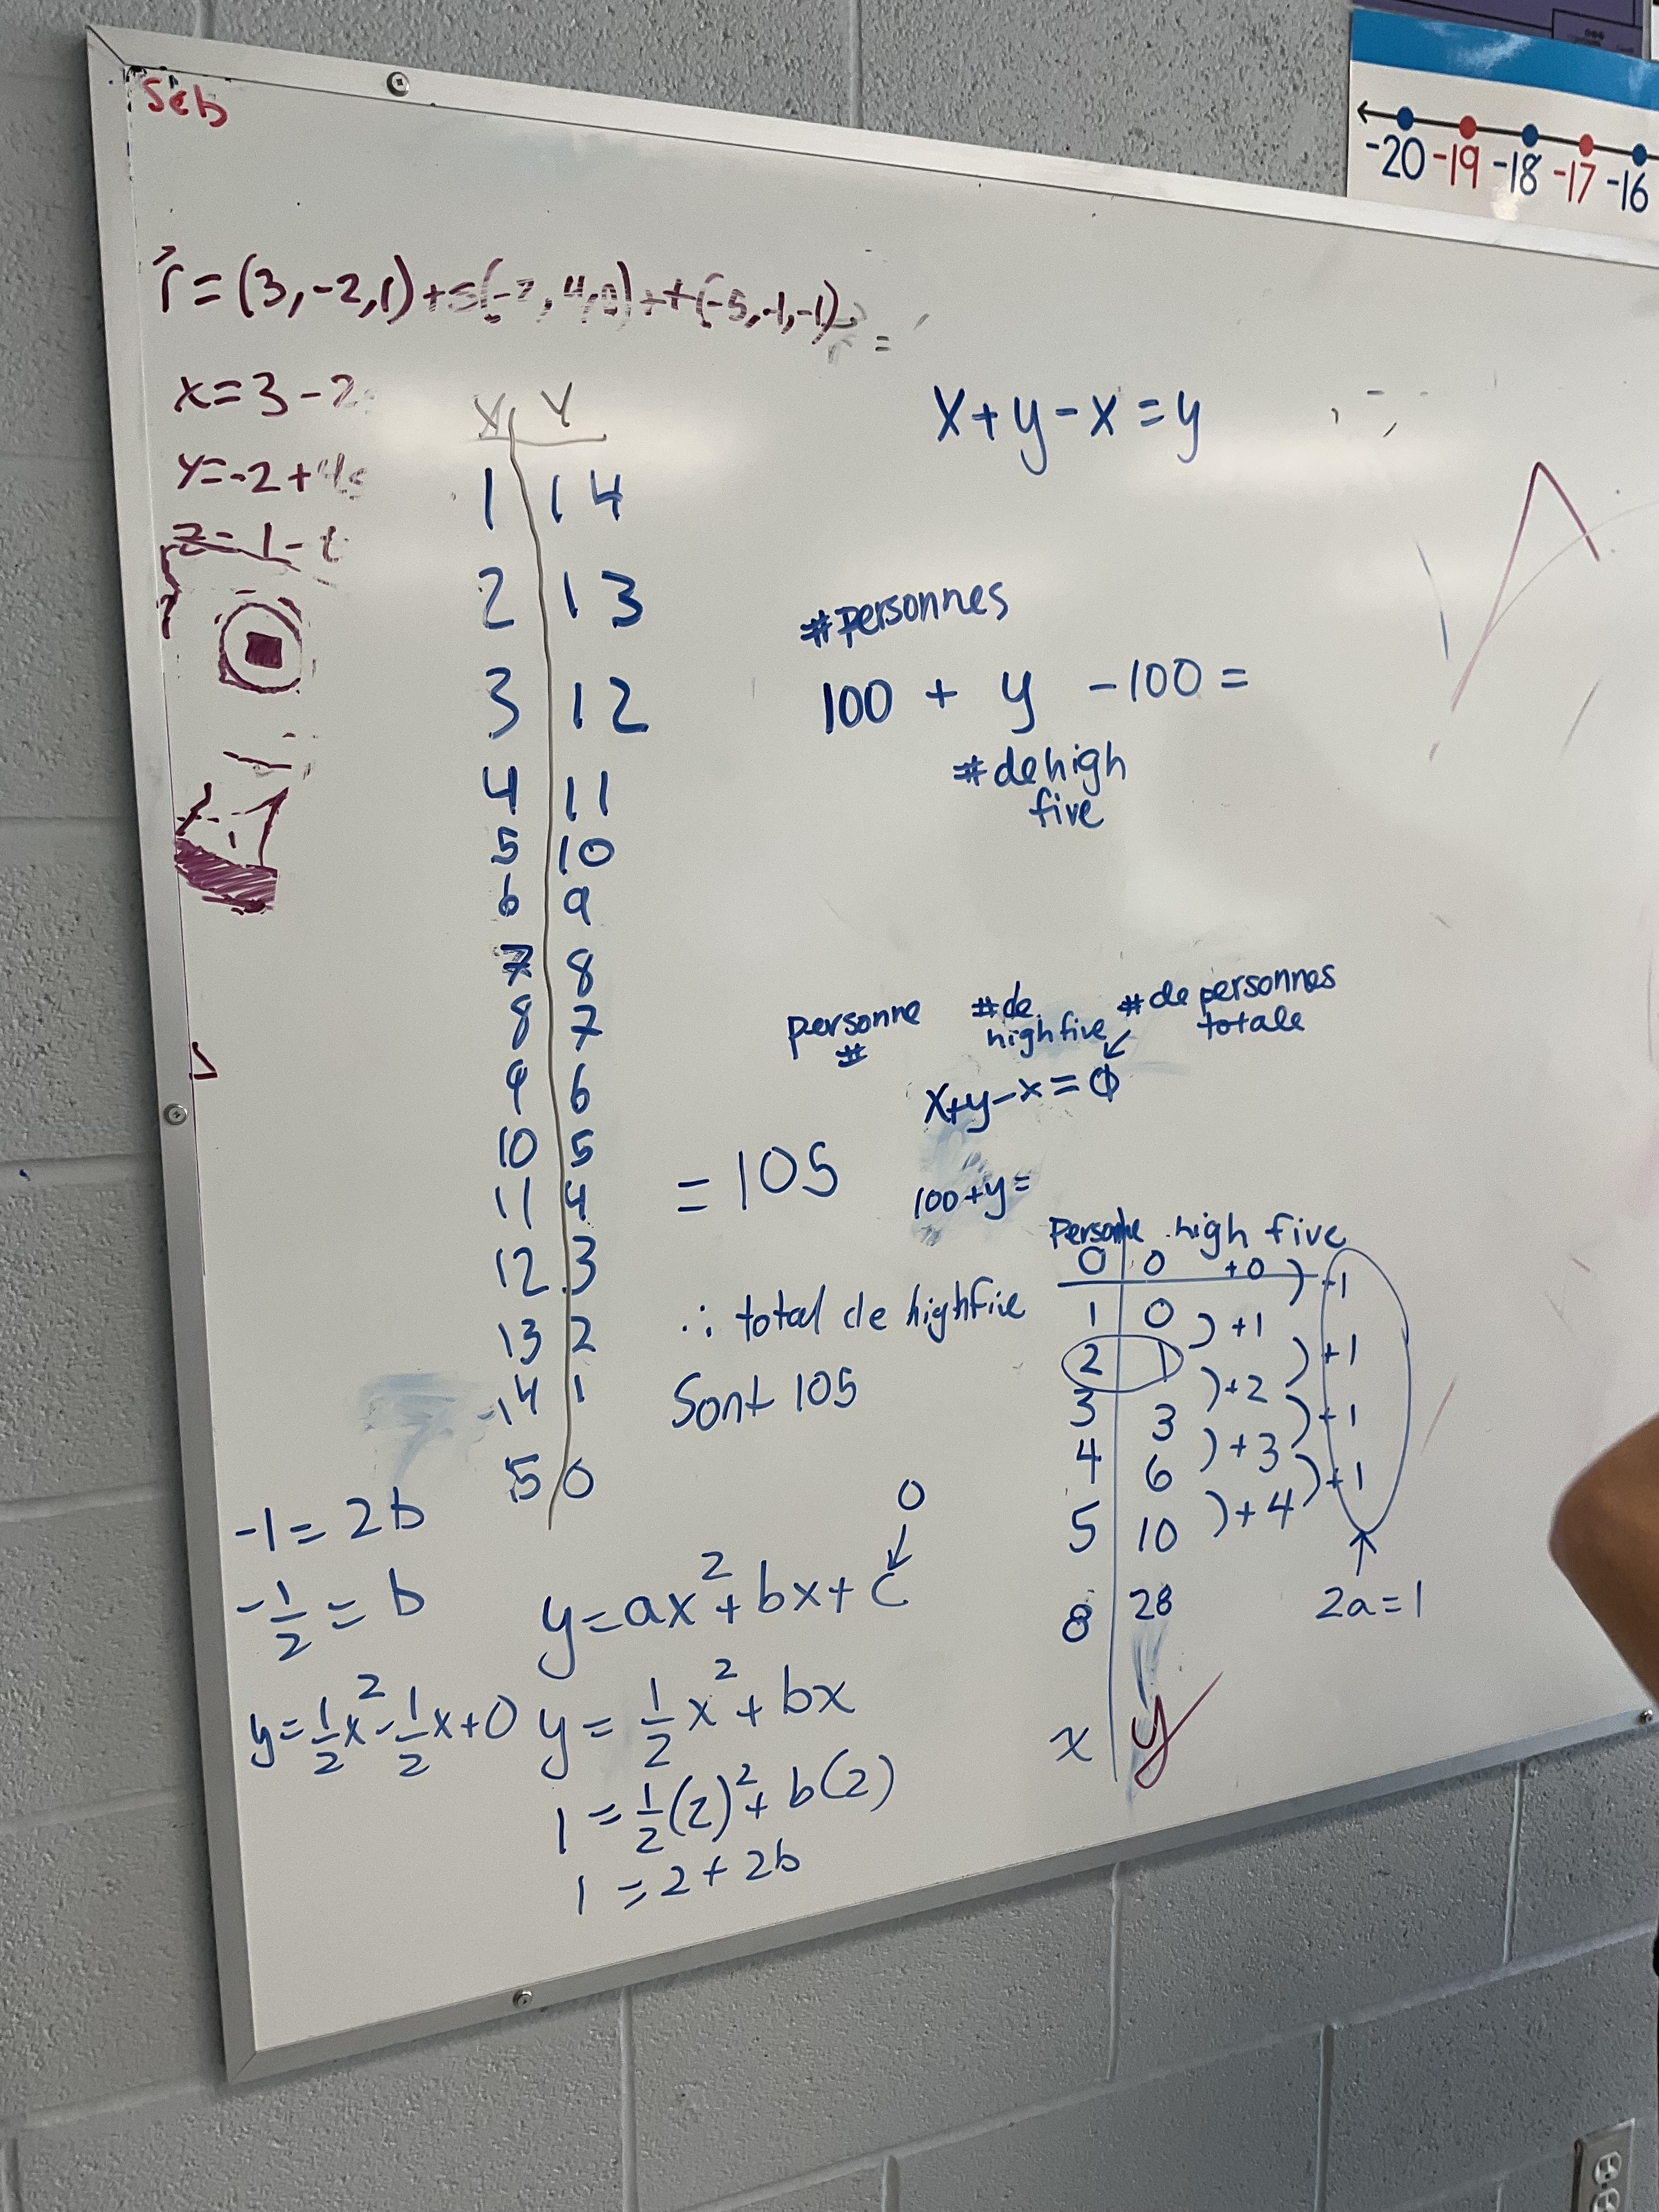 Seb
-20 -19 -18 -17 -16
r⃗ = (3, -2, 1) + s(-2, 4, 0) + t(-5, -1, -1)
=
x = 3 - 2
y = -2 + 4s
z = 1 - t
x + y - x = y
X Y
1 14
2 13
3 12
4 11
5 10
6 9
7 8
8 7
9 6
10 5
11 4
12 3
13 2
14 1
15 0
#personnes
100 + y - 100 =
#de high
five
personne
#
#de
highfive
# de personnes
totale
x+y-x=0
100+y=
= 105
∴ total de highfive
sont 105
Personne high five
0 0 +0 ) +1
1 0 ) +1
2 1 ) +1
) +2
3 3 ) +1
) +3
4 6 ) +1
) +4
5 10
8 28
x y
2a = 1
0
y = ax² + bx + c
y = ½x² + bx
1 = ½(2)² + b(2)
1 = 2 + 2b
-1 = 2b
-½ = b
y = ½x² - ½x + 0